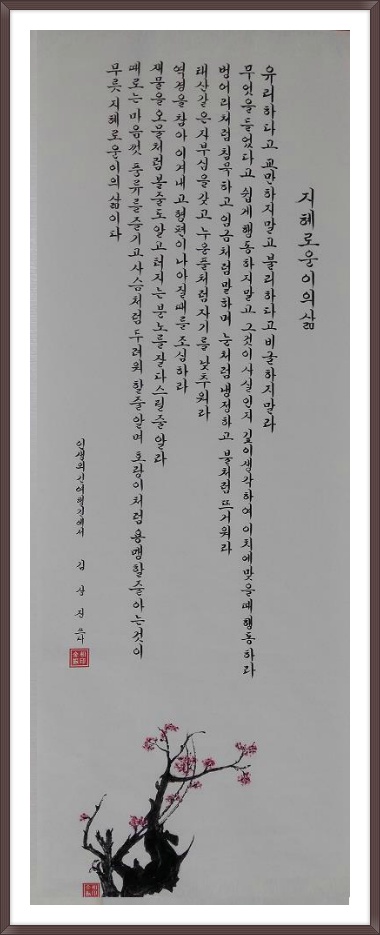 지혜로운이의삶
유리하다고 교만하지말고 불리하다고비굴하지말라
무엇을들었다고 쉽게행동하지말고 그것이사실인지 깊이생각하여 이치에맞을때행동하라
벙어리처럼침묵하고임금처럼말하며 눈처럼냉정하고 불처럼뜨거워라
태산같은자부심을갖고 누운풀처럼자기를 낮추워라
역경을참아 이겨내고형편이나아질때를 조심하라
재물을오물처럼볼줄도알고터지는분노를잘다스릴줄알라
때로는마음껏 풍류를즐기고사슴처럼두려워 할줄알며 호랑이처럼용맹할줄아는것이
무릇 지혜로운이의삶이다
인생의긴여행길에서 김상진